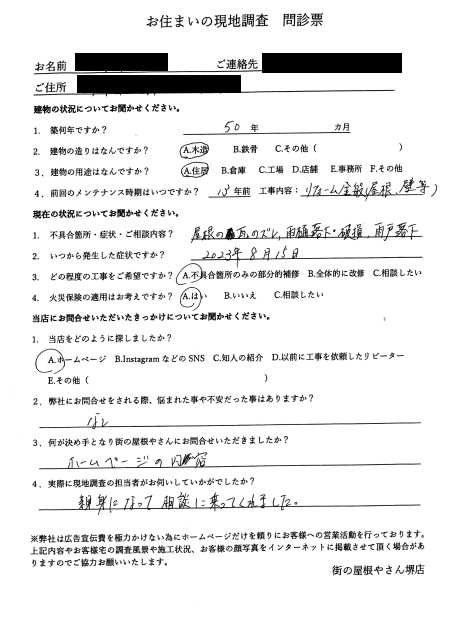 お住まいの現地調査　問診票
お名前　ご連絡先
ご住所
建物の状況についてお聞かせください。
1. 築何年ですか？　50 年　カ月
2. 建物の造りはなんですか？　A.木造　B.鉄骨　C.その他（　）
3. 建物の用途はなんですか？　A.住居　B.倉庫　C.工場　D.店舗　E.事務所　F.その他
4. 前回のメンテナンス時期はいつですか？　13 年前　工事内容：リフォーム全般(屋根、壁等)
現在の状況についてお聞かせください。
1. 不具合箇所・症状・ご相談内容？　屋根の瓦のズレ、雨樋落下・破損、雨戸落下
2. いつから発生した症状ですか？　2023年8月15日
3. どの程度の工事をご希望ですか？　A.不具合箇所のみの部分的補修　B.全体的に改修　C.相談したい
4. 火災保険の適用はお考えですか？　A.はい　B.いいえ　C.相談したい
当店にお問合せいただいたきっかけについてお聞かせください。
1. 当店をどのように探しましたか？
A.ホームページ　B.InstagramなどのSNS　C.知人の紹介　D.以前に工事を依頼したリピーター
E.その他（　）
2. 弊社にお問合せをされる際、悩まれた事や不安だった事はありますか？
なし
3. 何が決め手となり街の屋根やさんにお問合せいただきましたか？
ホームページの内容
4. 実際に現地調査の担当者がお伺いしていかがでしたか？
親身になって相談に乗ってくれました。
※弊社は広告宣伝費を極力かけない為にホームページだけを頼りにお客様への営業活動を行っております。
上記内容やお客様宅の調査風景や施工状況、お客様の顔写真をインターネットに掲載させて頂く場合があ
りますのでご協力お願いいたします。
街の屋根やさん堺店